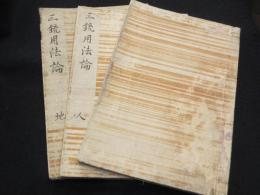 三銃用法論
地
三銃用法論
人